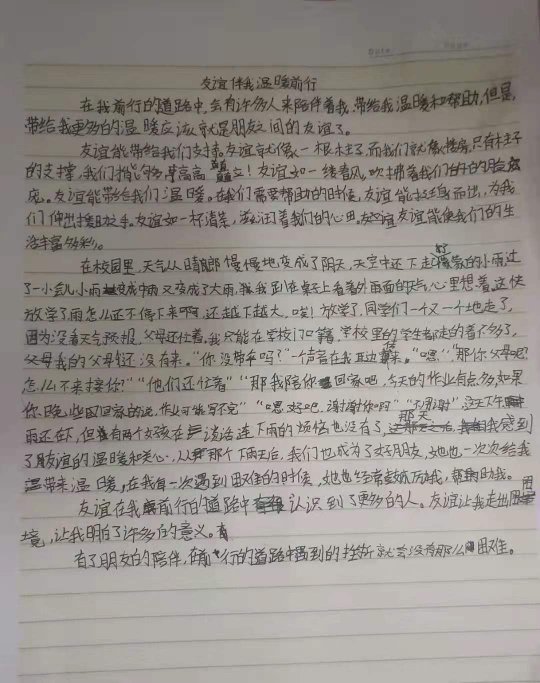 友谊伴我温暖前行
在我前行的道路中,会有许多人来陪伴着我,带给我温暖和帮助,但是,
带给我更多的温暖应该就是朋友之间的友谊了。
友谊能带给我们支持。友谊就像一根柱子,而我们就像楼房,只有柱子
的支撑,我们才能够高高矗立!友谊如一缕春风,吹拂着我们的脸
庞。友谊能带给我们温暖。在我们需要帮助的时候,友谊能挺身而出,为我
们伸出援助之手。友谊如一杯清茶,滋润着我们的心田。友谊能使我们的生
活丰富多彩。
在校园里,天气从晴朗慢慢地变成了阴天,天空中还下起了蒙蒙的小雨,过
了一小会儿小雨变成中雨又变成了大雨,我趴在桌子上看着外面的天气心里想着:这快
放学了雨怎么还不停下来啊,还越下越大。唉!放学了,同学们一个又一个地走了,
因为没看天气预报,父母还忙着。我只能在学校门口等着,学校里的学生都走的差不多了,
父母还没有来。“你没带伞吗?”一个声音在我耳边传来。“嗯”“那你父母呢?
怎么不来接你?”“他们还忙着”“那我陪你回家吧,今天的作业有点多,如果
你晚些回家的话,作业可能写不完”“嗯好吧,谢谢你啊”“不用谢”,这天下午
雨还在下,但有两个女孩在谈话连下雨的烦恼也没有了,那天我感到
了友谊的温暖和关心,从那个下雨天后,我们也成为了好朋友,她也一次次给我
带来温暖,在我每一次遇到困难的时候,她也经常鼓励我,帮助我。
友谊在我前行的道路中认识到了更多的人。友谊让我走出困
境,让我明白了许多的意义。
有了朋友的陪伴,在前行的道路中遇到的挫折就会没有那么困难。